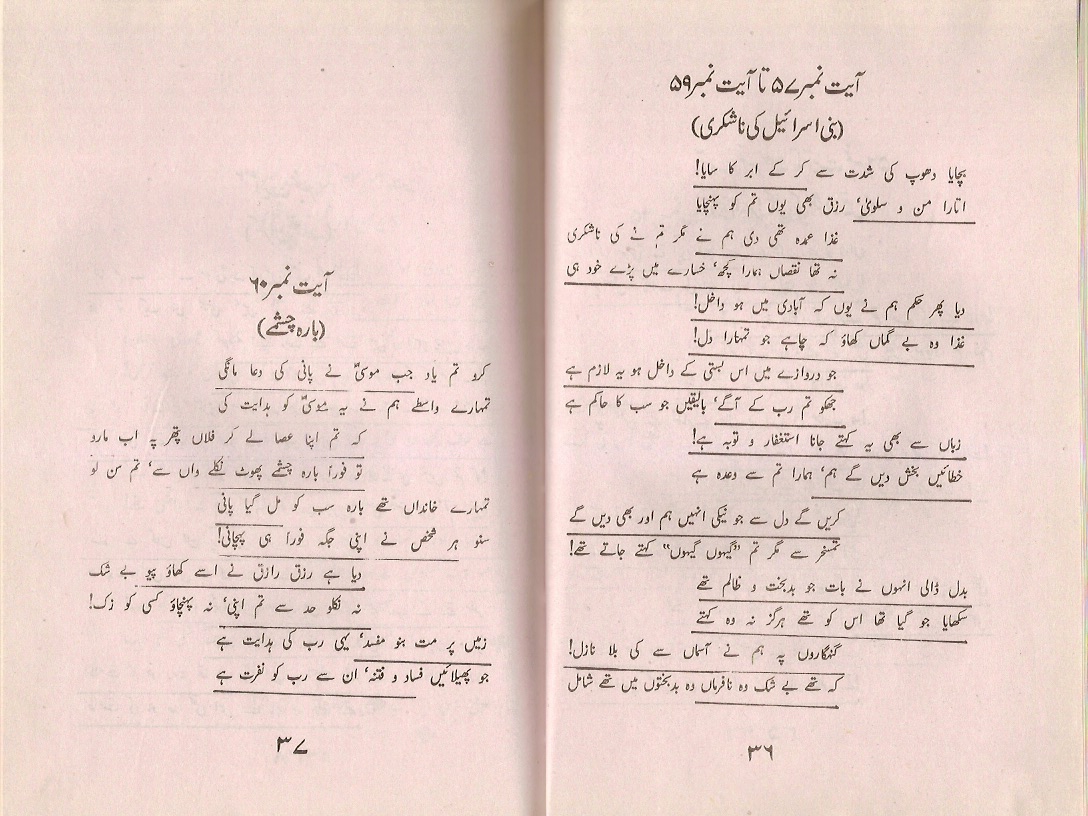 آیت نمبر ۵۷ تا آیت نمبر ۵۹
(بنی اسرائیل کی ناشکری)
بچایا دھوپ کی شدت سے کر کے ابر کا سایا!
اتارا من و سلویٰ، رزق بھی یوں تم کو پہنچایا
غذا عمدہ تھی دی ہم نے مگر تم نے کی ناشکری
نہ تھا نقصاں ہمارا کچھ، خسارے میں پڑے خود ہی
دیا پھر حکم ہم نے یوں کہ آبادی میں ہو داخل!
غذا وہ بے گماں کھاؤ کہ چاہے جو تمہارا دل!
جو دروازے میں اس بستی کے داخل ہو یہ لازم ہے
جھکو تم رب کے آگے، بالیقیں جو سب کا حاکم ہے
زباں سے بھی یہ کہتے جانا استغفار و توبہ ہے!
خطائیں بخش دیں گے ہم، ہمارا تم سے وعدہ ہے
کریں گے دل سے جو نیکی انہیں ہم اور بھی دیں گے
تمسخر سے مگر تم ”گیہوں گیہوں“ کہتے جاتے تھے!
بدل ڈالی انہوں نے بات جو بدبخت و ظالم تھے
سکھایا جو گیا تھا اس کو تھے ہرگز نہ وہ کہتے
گنہگاروں پہ ہم نے آسماں سے کی بلا نازل!
کہ تھے بے شک وہ نافرماں وہ بدبختوں میں تھے شامل
۳۶
آیت نمبر ۶۰
(بارہ چشمے)
کرو تم یاد جب موسیٰؑ نے پانی کی دعا مانگی
تمہارے واسطے ہم نے یہ موسیٰؑ کو ہدایت کی
کہ تم اپنا عصا لے کر فلاں پتھر پہ اب مارو
تو فوراً بارہ چشمے پھوٹ نکلے واں سے، تم سن لو
تمہارے خانداں تھے بارہ سب کو مل گیا پانی
سنو ہر شخص نے اپنی جگہ فوراً ہی پہچانی!
دیا ہے رزق رازق نے اسے کھاؤ پیو بے شک
نہ نکلو حد سے تم اپنی، نہ پہنچاؤ کسی کو زک!
زمیں پر مت بنو مفسد، یہی رب کی ہدایت ہے
جو پھیلائیں فساد و فتنہ، ان سے رب کو نفرت ہے
۳۷